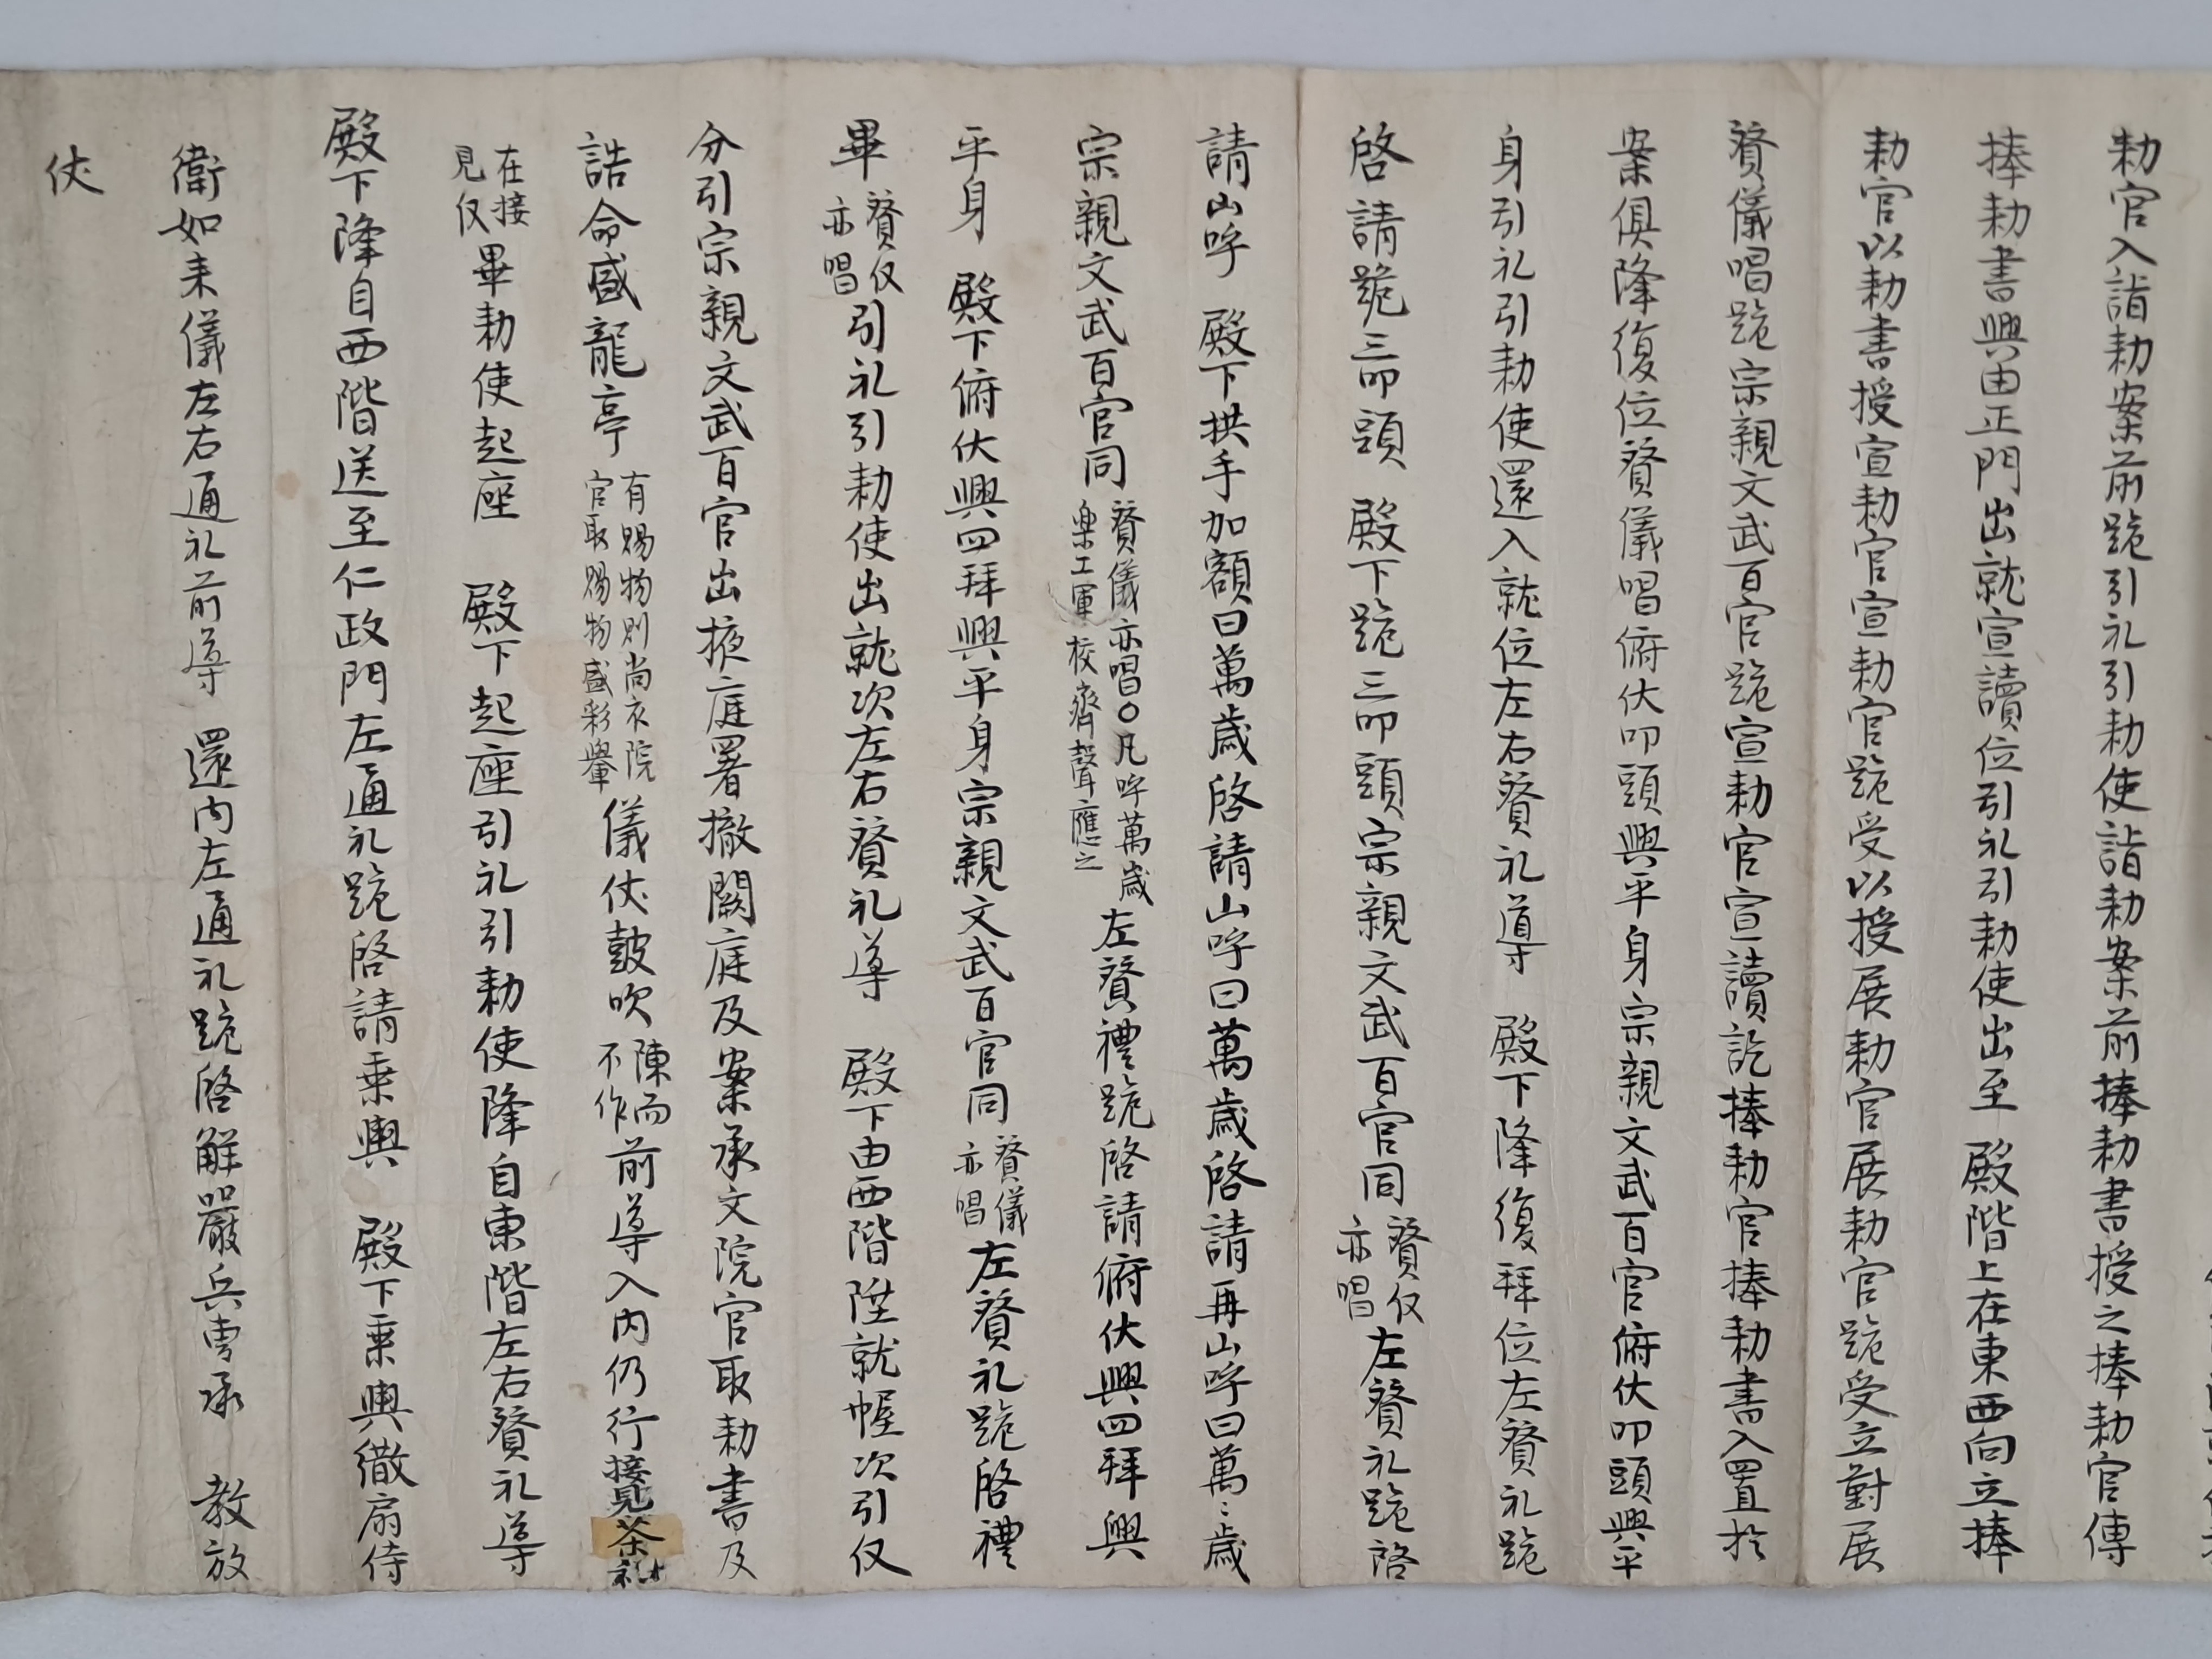 勅官入詣勅案前跪引礼引勅使詣勅案前捧勅書授之捧勅官傳
捧勅書興由正門出就宣讀位引礼引勅使出至 殿階上在東西向立捧
勅官以勅書授宣勅官宣勅官跪受以授展勅官展勅官跪受立對展
賛儀唱跪宗親文武百官跪宣勅官宣讀訖捧勅官捧勅書入置於
案俱降復位賛儀唱俯伏叩頭興平身宗親文武百官俯伏叩頭興平
身引礼引勅使還入就位左右賛礼導 殿下降復拜位左賛礼跪
啓請跪三叩頭 殿下跪三叩頭宗親文武百官同賛仪亦唱左賛礼跪啓
請山呼 殿下拱手加額曰萬歲啓請山呼曰萬歲啓請再山呼曰萬〻歲
宗親文武百官同賛儀亦唱○凡呼萬歲樂工軍校齊聲應之左賛禮跪啓請俯伏興四拜興
平身 殿下俯伏興四拜興平身宗親文武百官同賛儀亦唱左賛礼跪啓禮
畢賛仪亦唱引礼引勅使出就次左右賛礼導 殿下由西階陞就幄次引仪
分引宗親文武百官出掖庭署撤闕庭及案承文院官取勅書及
誥命盛龍亭有賜物則尚衣院官取賜物盛彩轝儀仗鼓吹陳而不作前導入内仍行接見茶礼
在接見仪畢勅使起座 殿下起座引礼引勅使降自東階左右賛礼導
殿下降自西階送至仁政門左通礼跪啓請乗輿 殿下乗輿繖扇侍
衛如来儀左右通礼前導 還内左通礼跪啓解嚴兵曺承 教放
仗